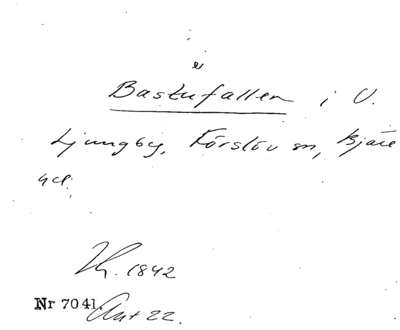 Bastufallen i V.
Ljungby, Förslöv sn, Bjäre
hd.
1842
Nr 7041.
22.